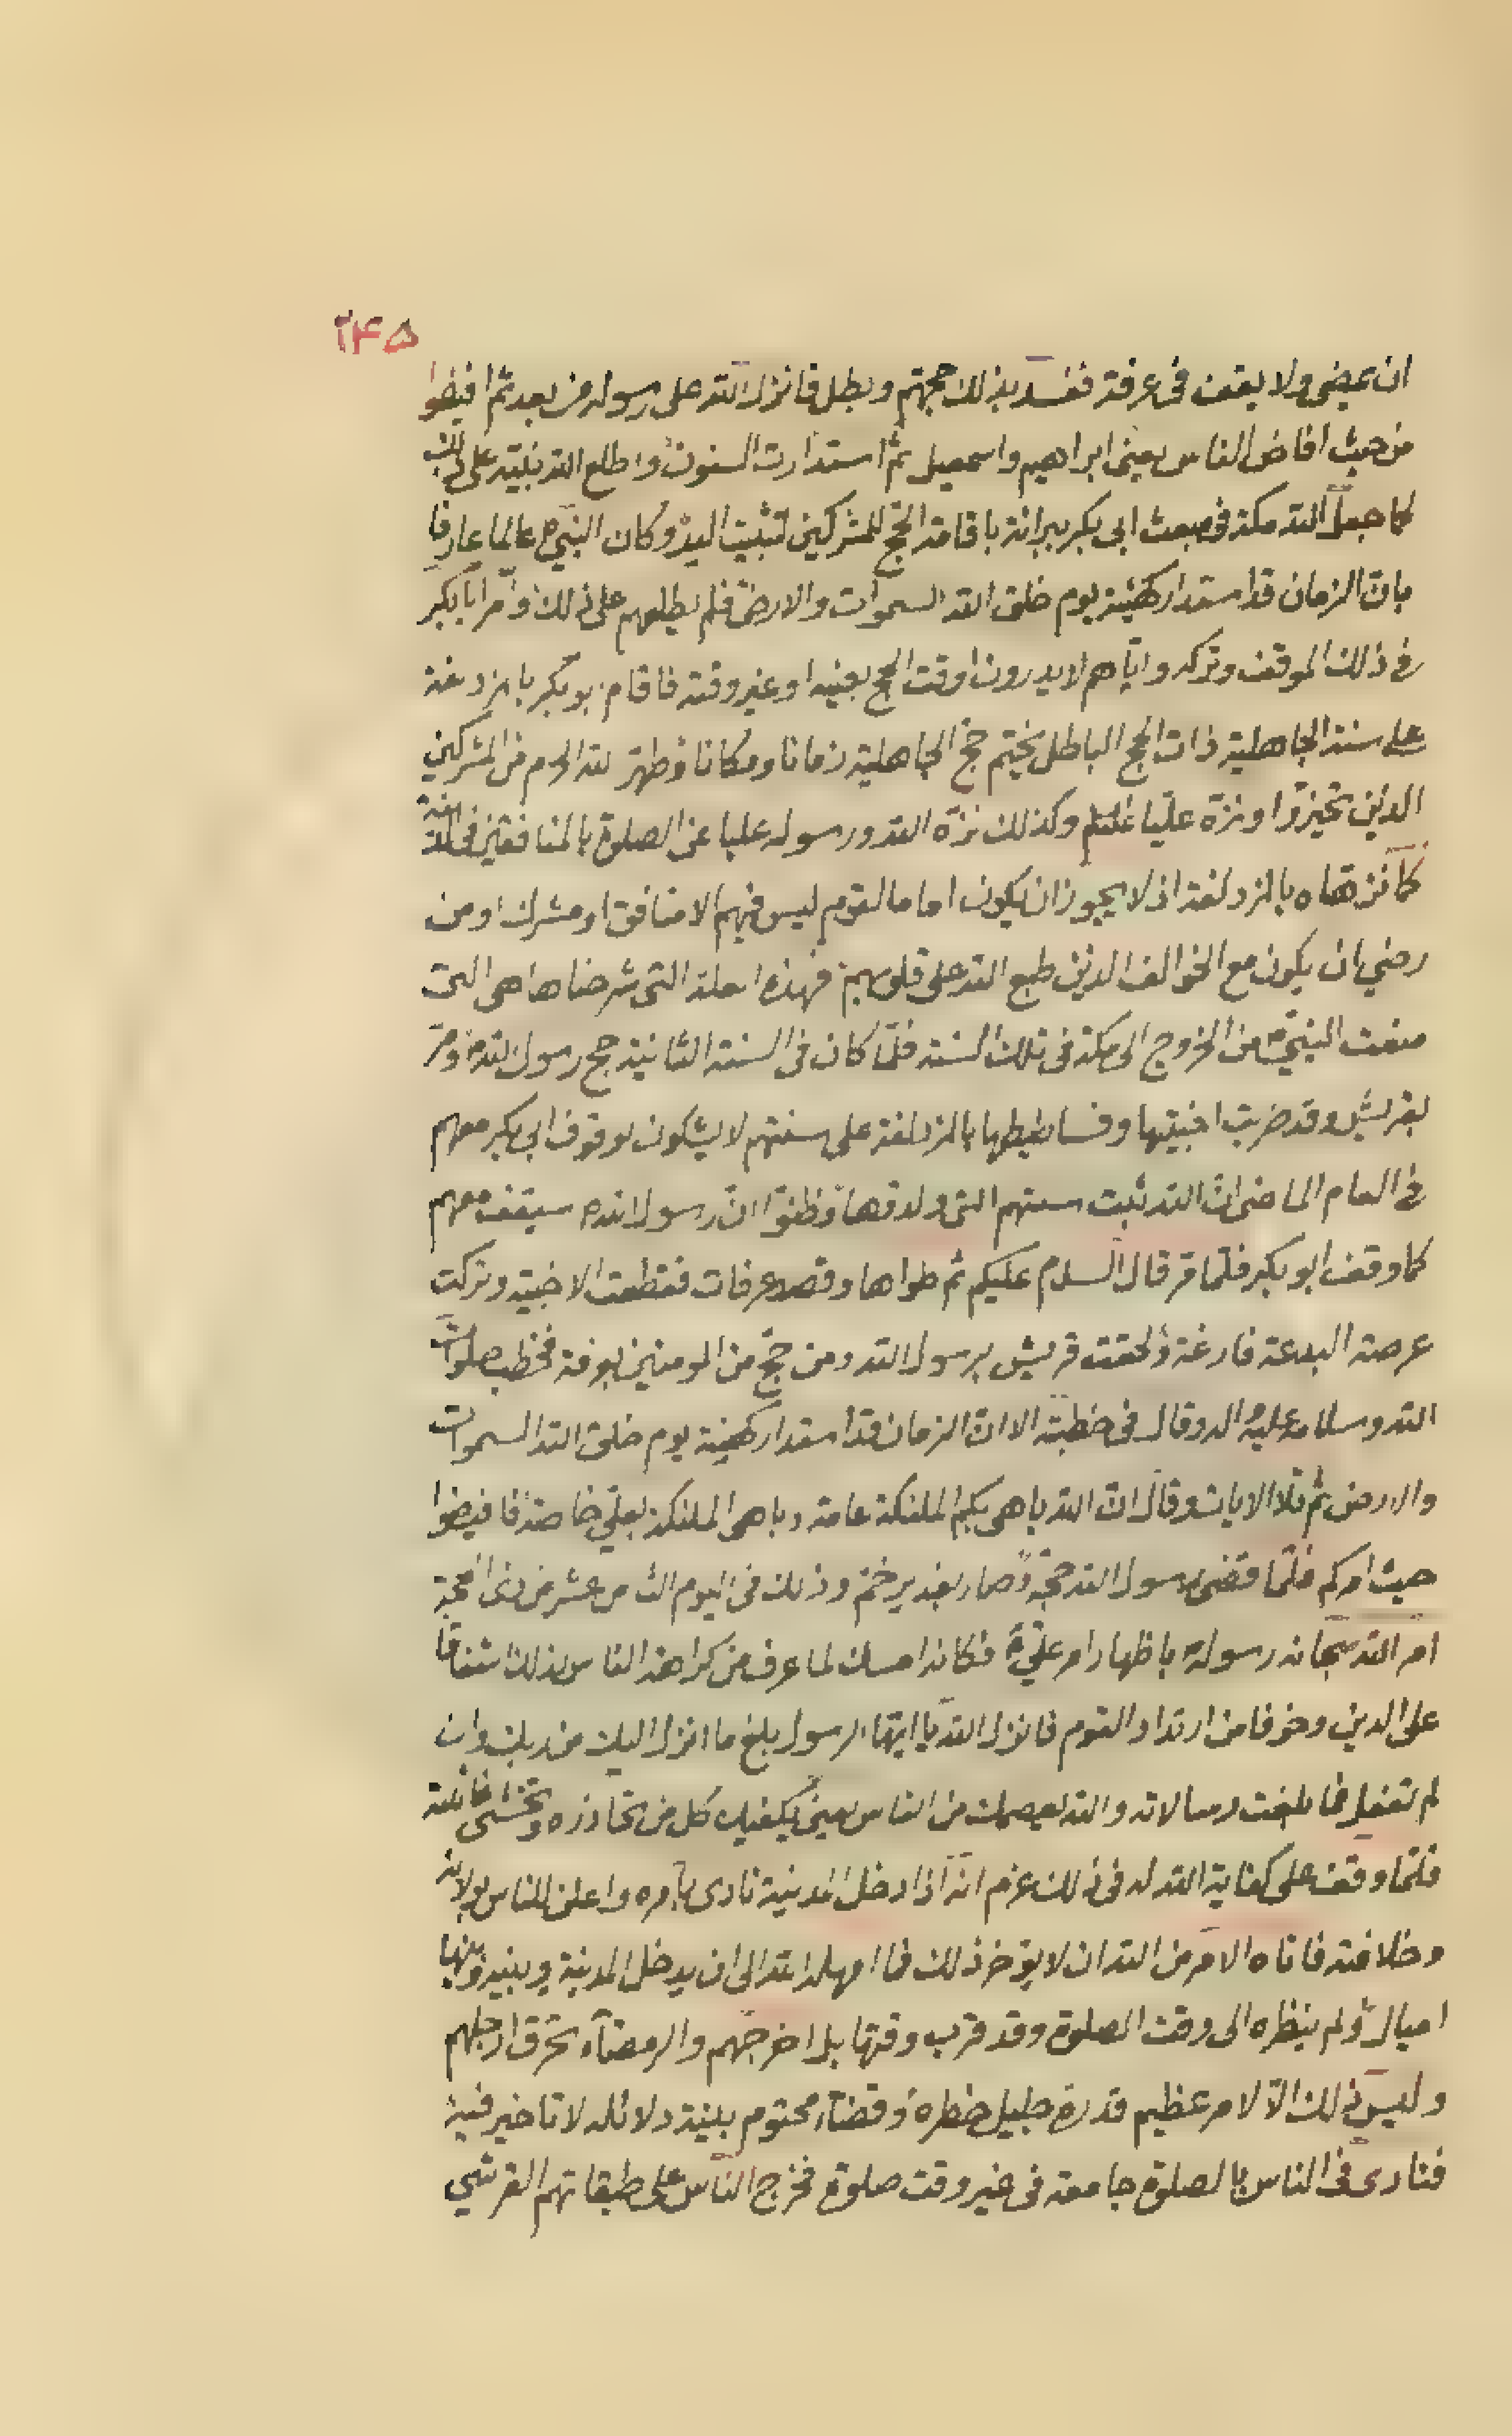 ٢۴۵
ان يمضى ولا يقف فى عرفة ففسد بذلك حجهم وبطل فانزل الله على رسوله من بعد ثم افيضوا
من حيث افاض الناس يعنى ابراهيم واسمعيل ثم استدارت السنون واطلع الله نبيه على ذلك
لما جعل الله مكة فبعث ابى بكر ببرائة باقامة الحج للمشركين لتثبيت اليه وكان النبى ص عالما عارفا
بان الزمان قد استدار كهيئته يوم خلق الله السموات والارض فلم يطلعهم على ذلك وامر ابا بكر
فى ذلك الموقف وتركه واياهم لا يدرون اوقت الحج بعينه او غير وقته فاقام ابو بكر بالمزدلفة
على سنة الجاهلية ذات الحج الباطل يختم حج الجاهلية زمانا ومكانا وطهر لله الحرم من المشركين
الذين تحيزوا ونزه عليا عنهم وكذلك نزه الله ورسوله عليا عن الصلوة بالمنافقين فى المدينة
كما نزهاه بالمزدلفة اذ لا يجوز ان يكون اماما لقوم ليس فيهم الا منافق او مشرك او من
رضي ان يكون مع الخوالف الذين طبع الله على قلوبهم فهذه العلة التى شرحناها هى التى
منعت النبى ص من الخروج الى مكة فى تلك السنة فلما كان فى السنة الثانية حج رسول الله ص ومر
بقريش وقد ضربت اخبيتها وفساطيطها بالمزدلفة على سنتهم لا يشكون لوقوف ابى بكر معهم
فى العام الماضى ان الله ثبت سنتهم التى ولدوها وظنوا ان رسول الله ص سيقف معهم
كما وقف ابو بكر فلما مر قال السلام عليكم ثم طواها وقصد عرفات فقطعت الاخبية وتركت
عرصة البدعة فارغة ولحقت قريش برسول الله ومن حج من المومنين بعرفة فخطب صلوات
الله وسلامه عليه واله وقال فى خطبته الا ان الزمان قد استدار كهيئة يوم خلق الله السموات
والارض ثم تلا الايات وقال ان الله باهى بكم الملئكة عامة وباهى الملئكة بعلى خاصة فافيضوا
حيث امركم فلما قضى رسول الله حجه وصار بغدير خم وذلك فى اليوم الثامن عشر من ذى الحجة
امر الله سبحانه رسوله باظهار امر على ع فكانه امسك لما عرف من كراهة الناس لذلك شفقا
على الدين وخوفا من ارتداد القوم فانزل الله يا ايها الرسول بلغ ما انزل اليك من ربك وان
لم تفعل فما بلغت رسالاته والله يعصمك من الناس يعنى يكفيك كل من تحاذره وتخشى غائلته
فلما وقف على كفاية الله له فى ذلك عزم انه اذا دخل المدينة نادى بامره واعلن للناس بولايته
وخلافته فاتاه الامر من الله ان لا يؤخر ذلك فما امهله الله الى ان يدخل المدينة وبينه وبينها
اميال ولم ينظره الى وقت الصلوة وقد قرب وقتها بل اخرجهم والرمضآء تحرق ارجلهم
وليس ذلك الا لامر عظيم قدره جليل خطره وقضآء محتوم بينة دلائله لا تاخير فيه
فنادى فى الناس بالصلوة جامعة فى غير وقت صلوة فخرج الناس على طبقاتهم القرشي